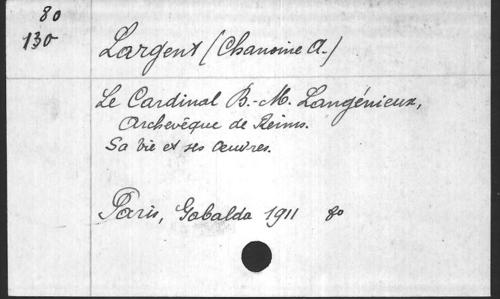 80
130
Largent (Chanoine A.)
Le Cardinal B.-M. Langénieux,
Archevêque de Reims.
Sa vie et ses œuvres.
Paris, Gabalda 1911 80